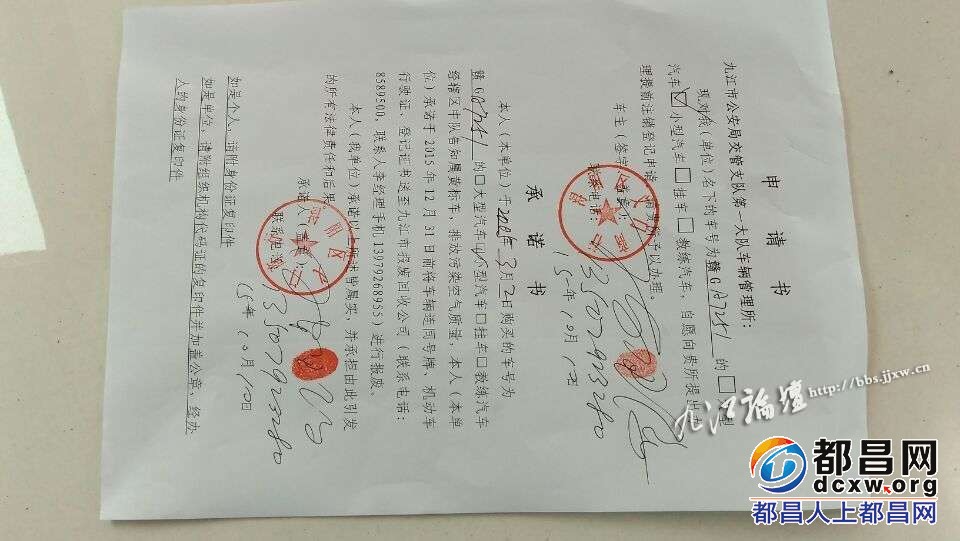 申 请 书
九江市公安局交管支队第一大队车辆管理所：
现对我（单位）名下的车号为赣G 的□ 型
汽车☑小型汽车□挂车□教练汽车，自愿向贵所提出办
理提前注销登记申请， 予以办理。
车主（签字
联系电话： 13507923280
15年10月10日
承 诺 书
本人（本单位）于 年3月2日购买的车号为
赣G 的□大型汽车☑小型汽车□挂车□教练汽车
经辖区中队告知属黄标车，排放污染空气质量，本人（本单
位）承诺于2015年12月31日前将车辆连同号牌、机动车
行驶证、登记证书送至九江市报废回收公司（联系电话：
8589500，联系人李经理手机13979268955）进行报废。
本人（我单位）承诺以上所述皆属实，并承担由此引发
的所有法律责任和后果。
承诺人（签章）：
联系电话： 13507923280
15年10月10日
如是个人，请附身份证复印件
如是单位，请附组织机构代码证的复印件并加盖公章，经办
人的身份证复印件
九江论坛 http://bbs.jjxw.cn
都昌网
dcxw.org
都昌人上都昌网